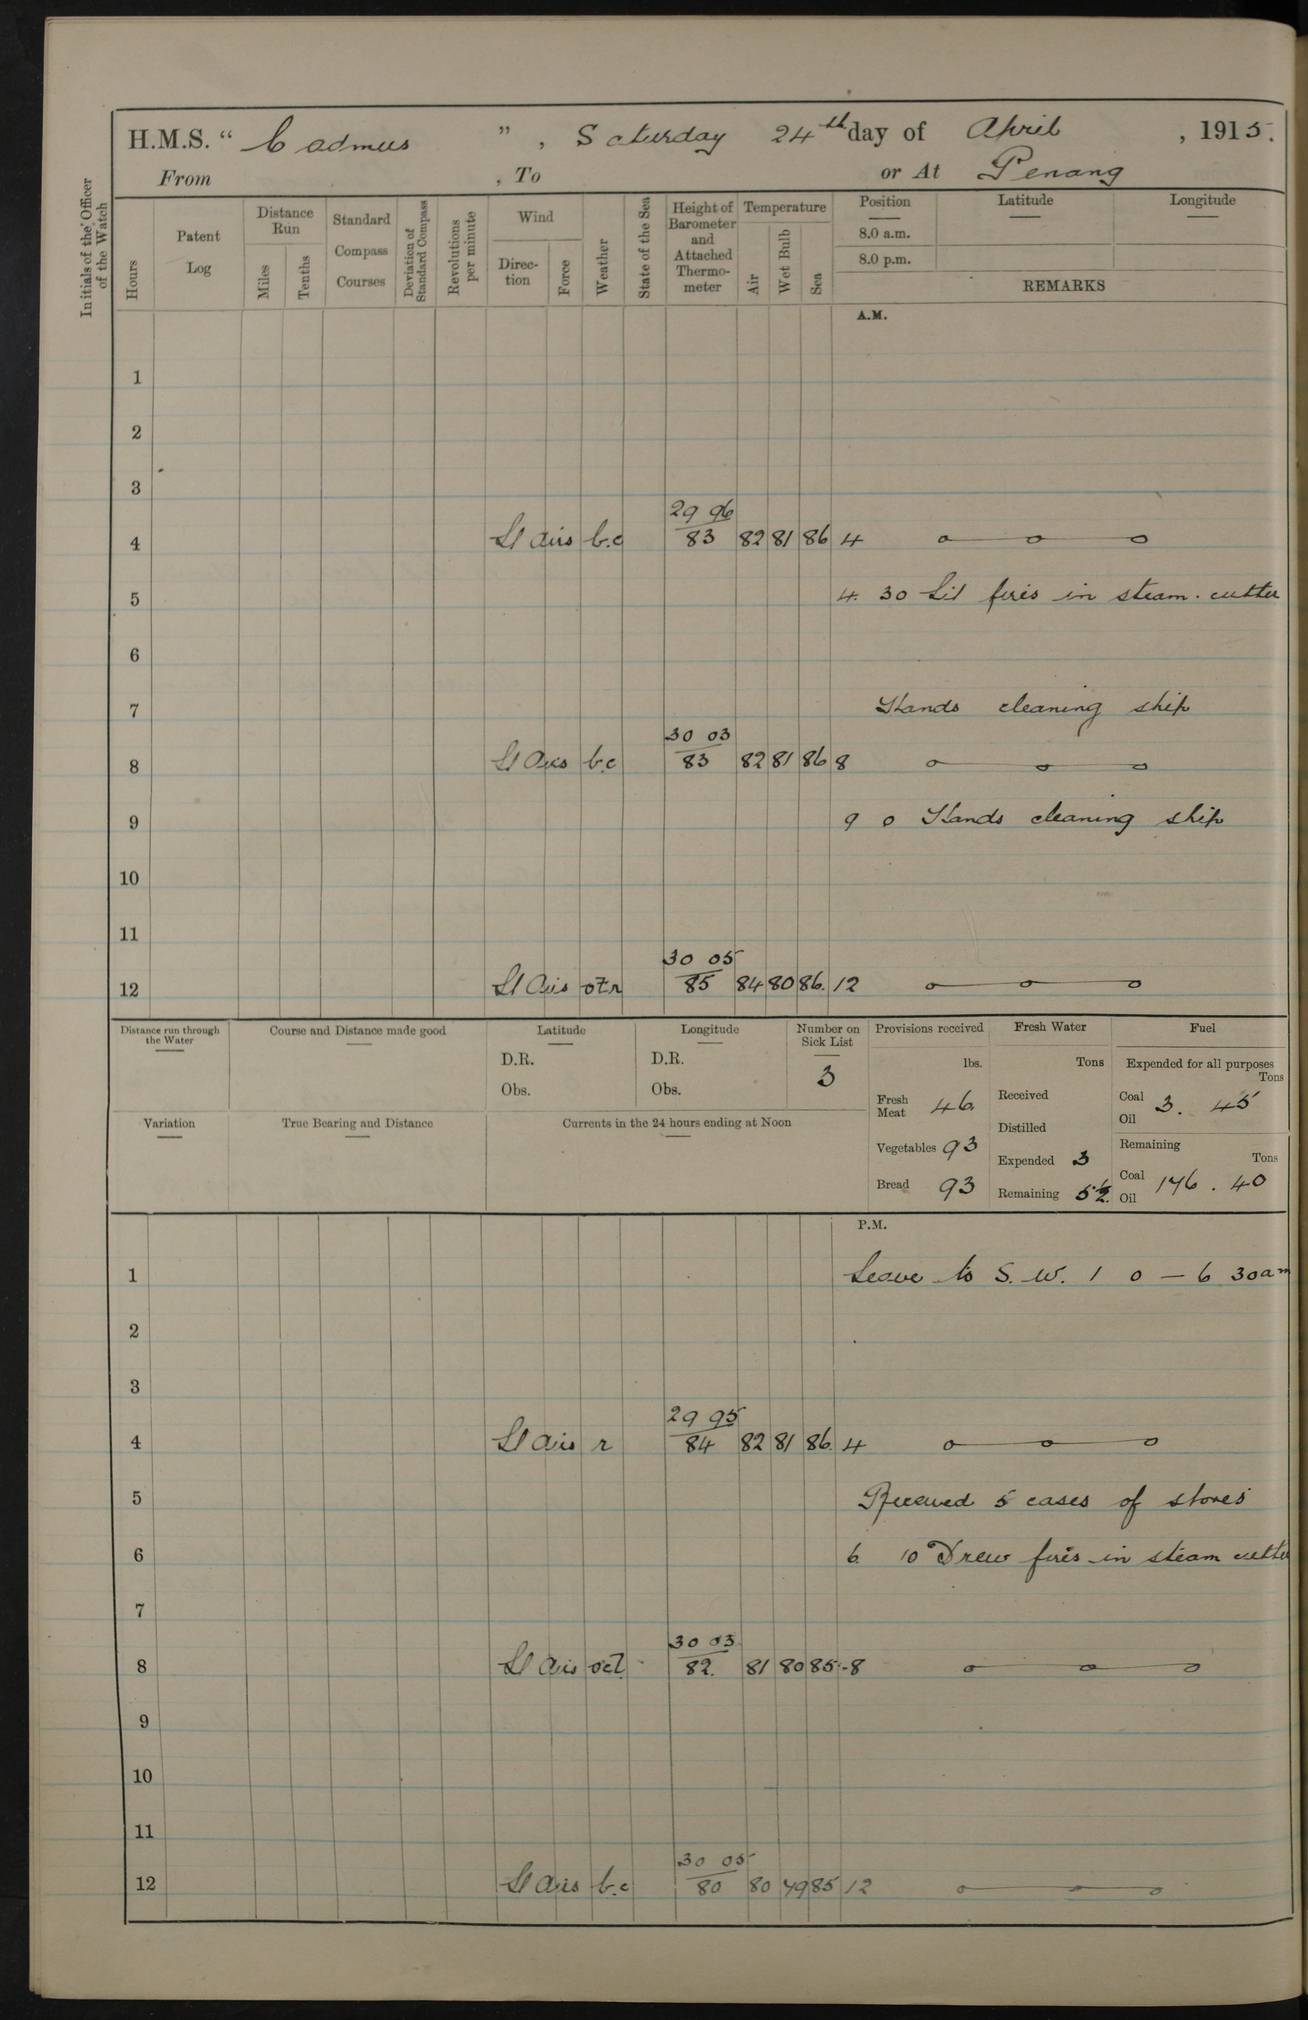 H.M.S. “ Cadmus ” , Saturday 24th day of April , 1915.
From , To or At Penang
Initials of the Officer of the Watch
Hours
Patent Log
Distance Run
Miles
Tenths
Standard Compass Courses
Deviation of Standard Compass
Revolutions per minute
Wind
Direc-tion
Force
Weather
State of the Sea
Height of Barometer and Attached Thermo-meter
Temperature
Air
Wet Bulb
Sea
Position
8.0 a.m.
8.0 p.m.
Latitude
Longitude
REMARKS
A.M.
1
2
3
29 96
4 Lt airs b.c 83 82 81 86 4
5 4. 30 Lit fires in steam. cutter
6
7 Hands cleaning ship
30 03
8 Lt airs b.c 83 82 81 86 8
9 9 0 Hands cleaning ship
10
11
30 05
12 Lt airs 85 84 80 86. 12
Distance run through the Water
Course and Distance made good
Latitude
D.R.
Obs.
Longitude
D.R.
Obs.
Number on Sick List
3
Provisions received
lbs.
Fresh Meat 46
Vegetables 93
Bread 93
Fresh Water
Tons
Received
Distilled
Expended 3
Remaining
Fuel
Expended for all purposes
Tons
Coal 3. 45
Oil
Remaining
Tons
Coal 176. 40
Oil
Variation
True Bearing and Distance
Currents in the 24 hours ending at Noon
P.M.
1 Leave to S.W. 1 0 — 6 30am
2
3
29 95
4 Lt airs r 84 82 81 86. 4
5 Received 5 cases of stores
6 6. 10 Drew fires in steam cutter
7
30 03
8 Lt airs 82. 81 80 85 8
9
10
11
30 05
12 Lt airs b.c 80 80 79 85 12